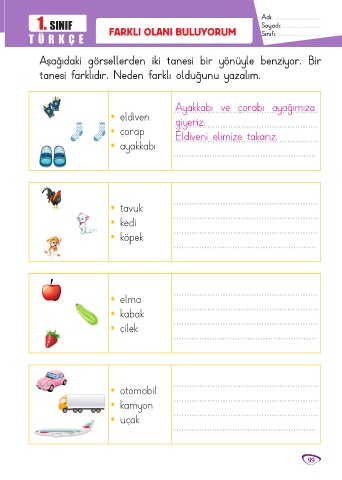 1. SINIF
TÜRKÇE
FARKLI OLANI BULUYORUM
Adı:
Soyadı:
Sınıfı:
Aşağıdaki görsellerden iki tanesi bir yönüyle benziyor. Bir
tanesi farklıdır. Neden farklı olduğunu yazalım.
• eldiven
• çorap
• ayakkabı
Ayakkabı ve çorabı ayağımıza
giyeriz.
Eldiveni elimize takarız.
• tavuk
• kedi
• köpek
• elma
• kabak
• çilek
• otomobil
• kamyon
• uçak
99